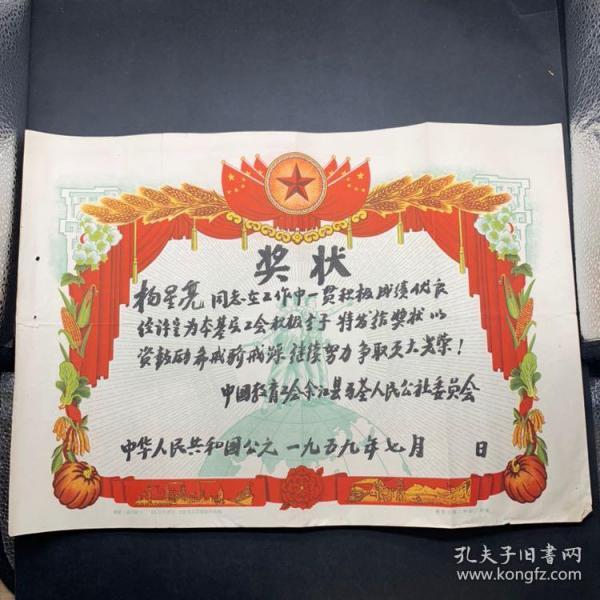 奖状
杨星亮 同志在工作中一贯积极成绩优良
经评定为本基层工会积极分子 特发给奖状以
资鼓励希戒骄戒躁继续努力争取更大光荣！
中国教育工会余江县马荃人民公社委员会
中华人民共和国公元一九五九年七月 日
孔夫子旧书网
www.kongfz.com